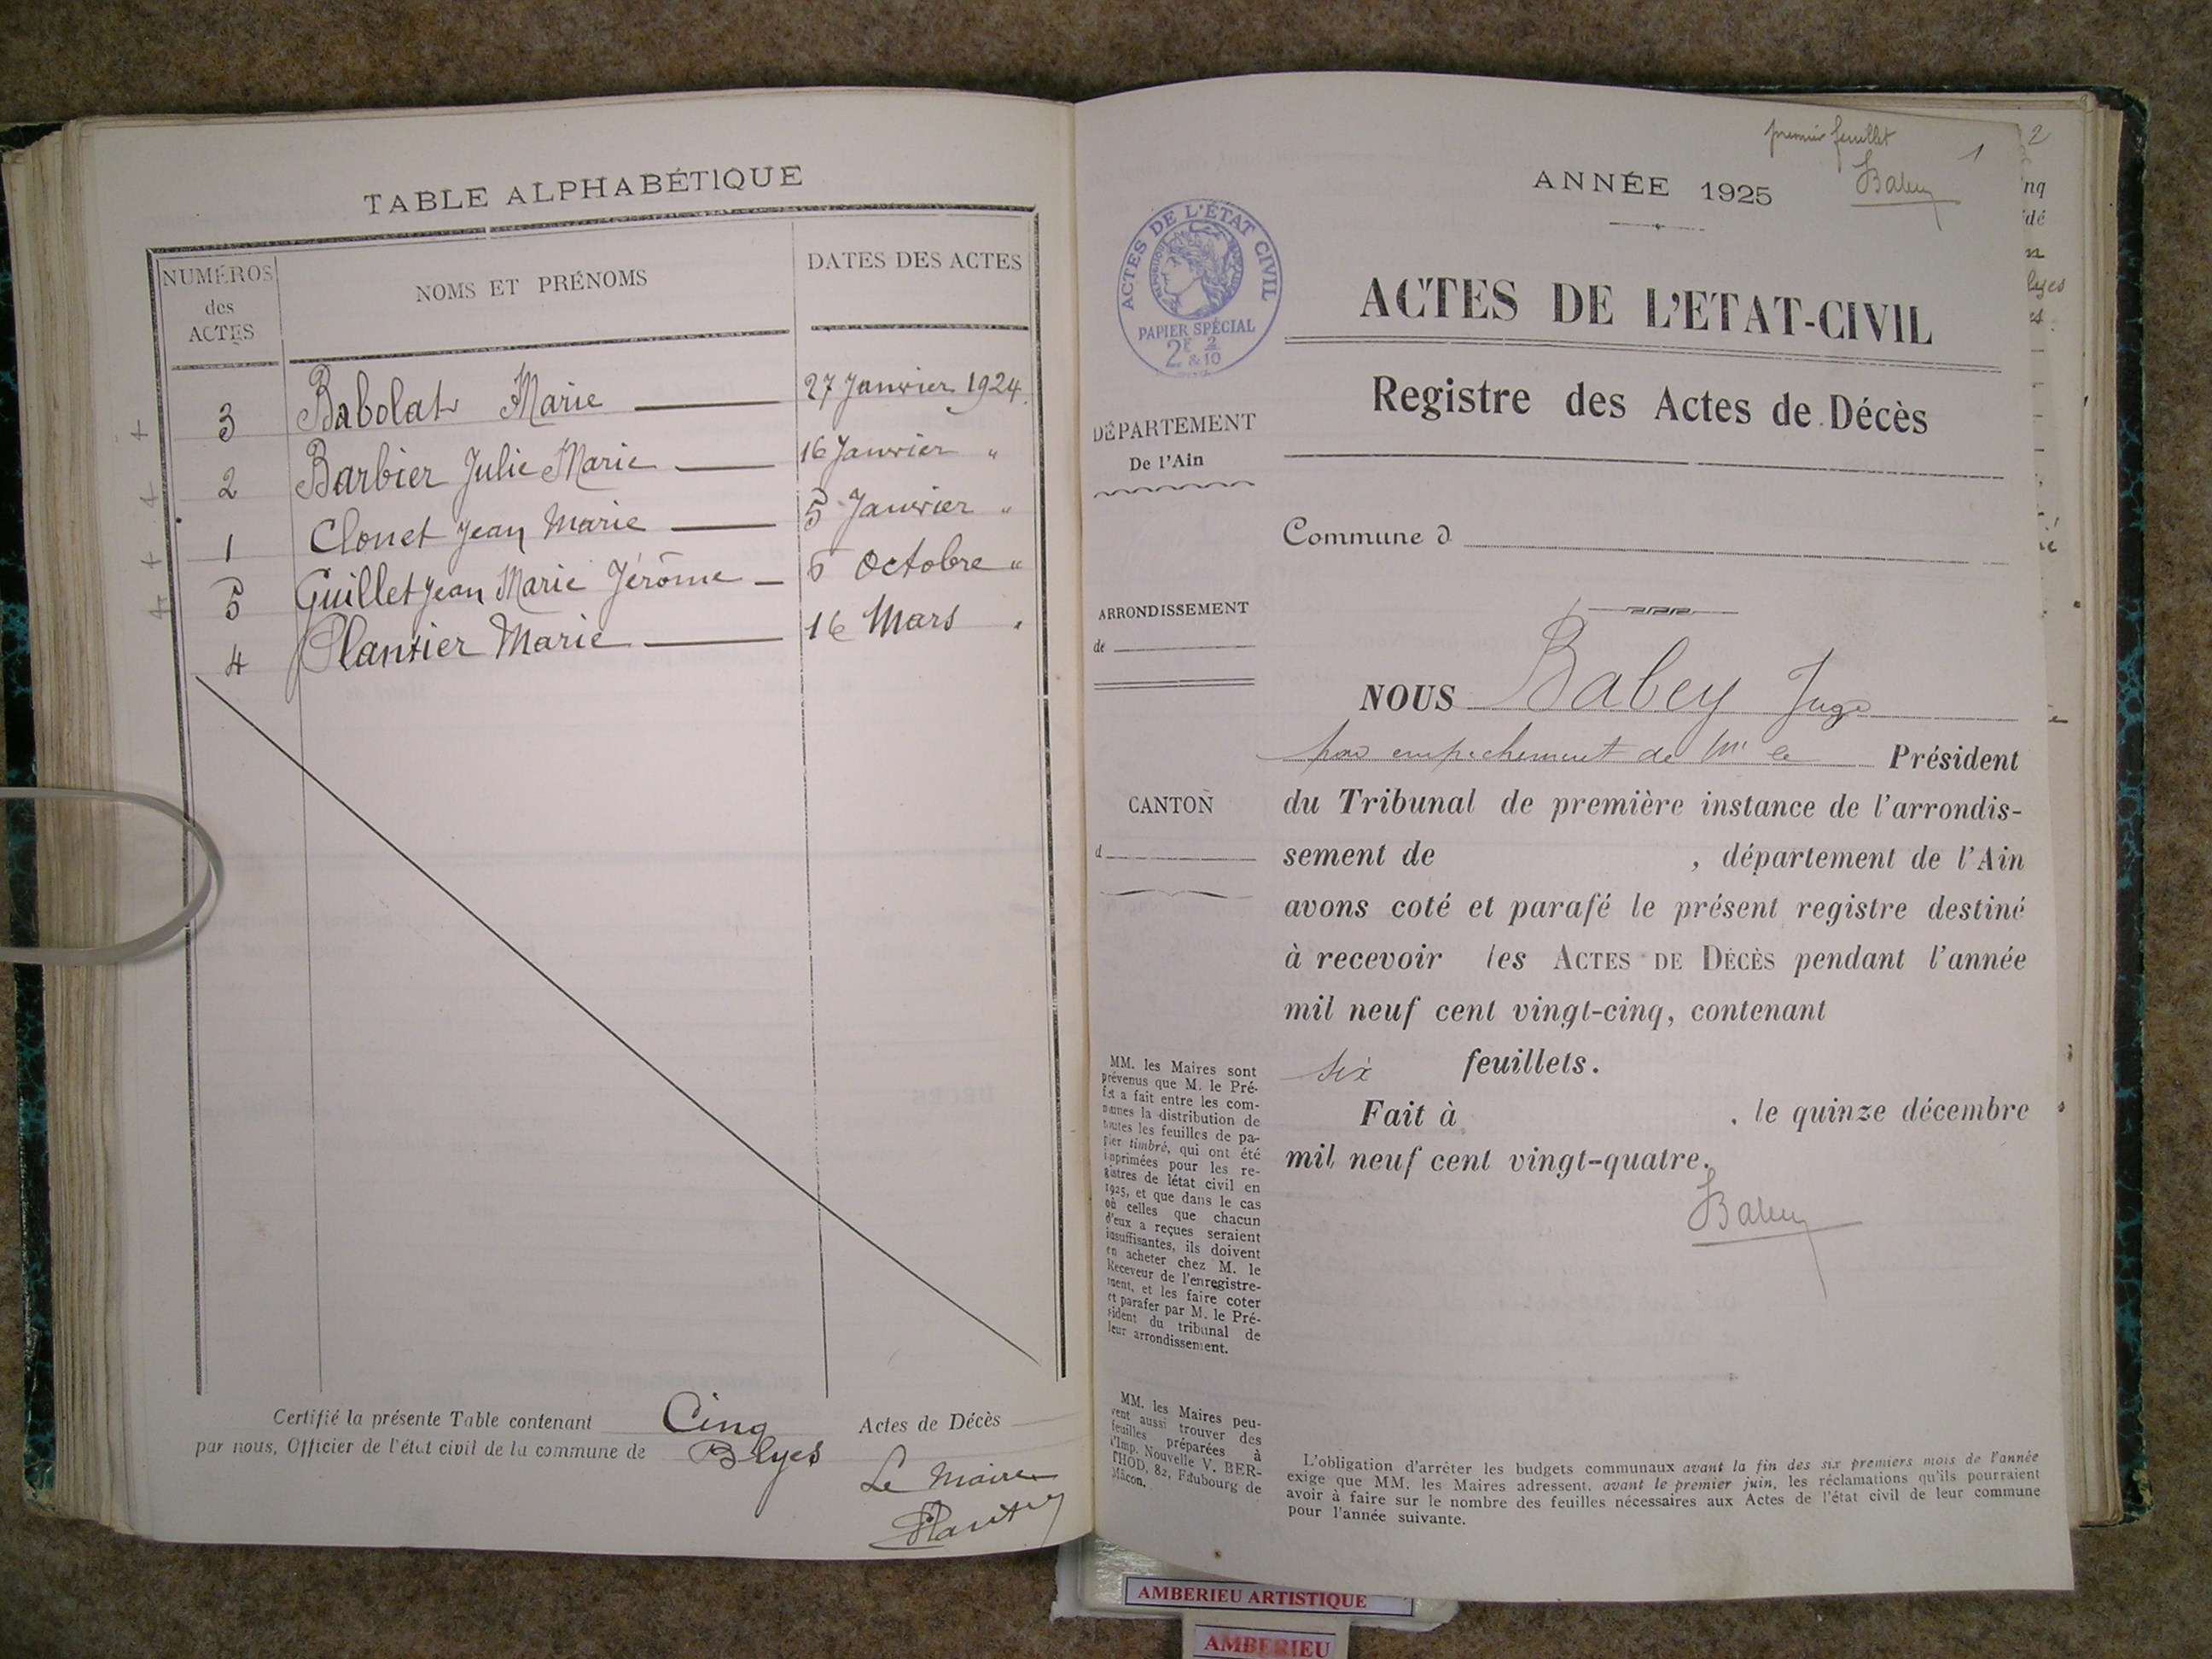 TABLE ALPHABÉTIQUE
NUMÉROS des ACTES
NOMS ET PRÉNOMS
DATES DES ACTES
3 Babolat Marie 27 Janvier 1924.
2 Barbier Julie Marie 16 Janvier "
1 Clonet Jean Marie 5 Janvier "
5 Guillet Jean Marie Jérôme 6 Octobre "
4 Plantier Marie 16 Mars "
Certifié la présente Table contenant Cinq Actes de Décès
par nous, Officier de l'état civil de la commune de Blyes
Le Maire
premier feuillet
1
Babey
ANNÉE 1925
ACTES DE L'ÉTAT CIVIL
PAPIER SPÉCIAL
2F & 2/10
ACTES DE L'ETAT-CIVIL
Registre des Actes de Décès
DÉPARTEMENT
De l'Ain
Commune d
ARRONDISSEMENT
de
CANTON
d
NOUS Babey Juge
par empêchement de Mr le Président
du Tribunal de première instance de l'arrondis-
sement de , département de l'Ain
avons coté et parafé le présent registre destiné
à recevoir les ACTES DE DÉCÈS pendant l'année
mil neuf cent vingt-cinq, contenant
six feuillets.
Fait à , le quinze décembre
mil neuf cent vingt-quatre.
Babey
MM. les Maires sont
prévenus que M. le Pré-
fet a fait entre les com-
munes la distribution de
toutes les feuilles de pa-
pier timbré, qui ont été
imprimées pour les re-
gistres de létat civil en
1925, et que dans le cas
où celles que chacun
d'eux a reçues seraient
insuffisantes, ils doivent
en acheter chez M. le
Receveur de l'enregistre-
ment, et les faire coter
et parafer par M. le Pré-
sident du tribunal de
leur arrondissement.
MM. les Maires peu-
vent aussi trouver des
feuilles préparées à
l'Imp. Nouvelle V. BER-
THOD, 82, Faubourg de
Mâcon.
L'obligation d'arrêter les budgets communaux avant la fin des six premiers mois de l'année
exige que MM. les Maires adressent, avant le premier juin, les réclamations qu'ils pourraient
avoir à faire sur le nombre des feuilles nécessaires aux Actes de l'état civil de leur commune
pour l'année suivante.
2
AMBERIEU ARTISTIQUE
AMBERIEU